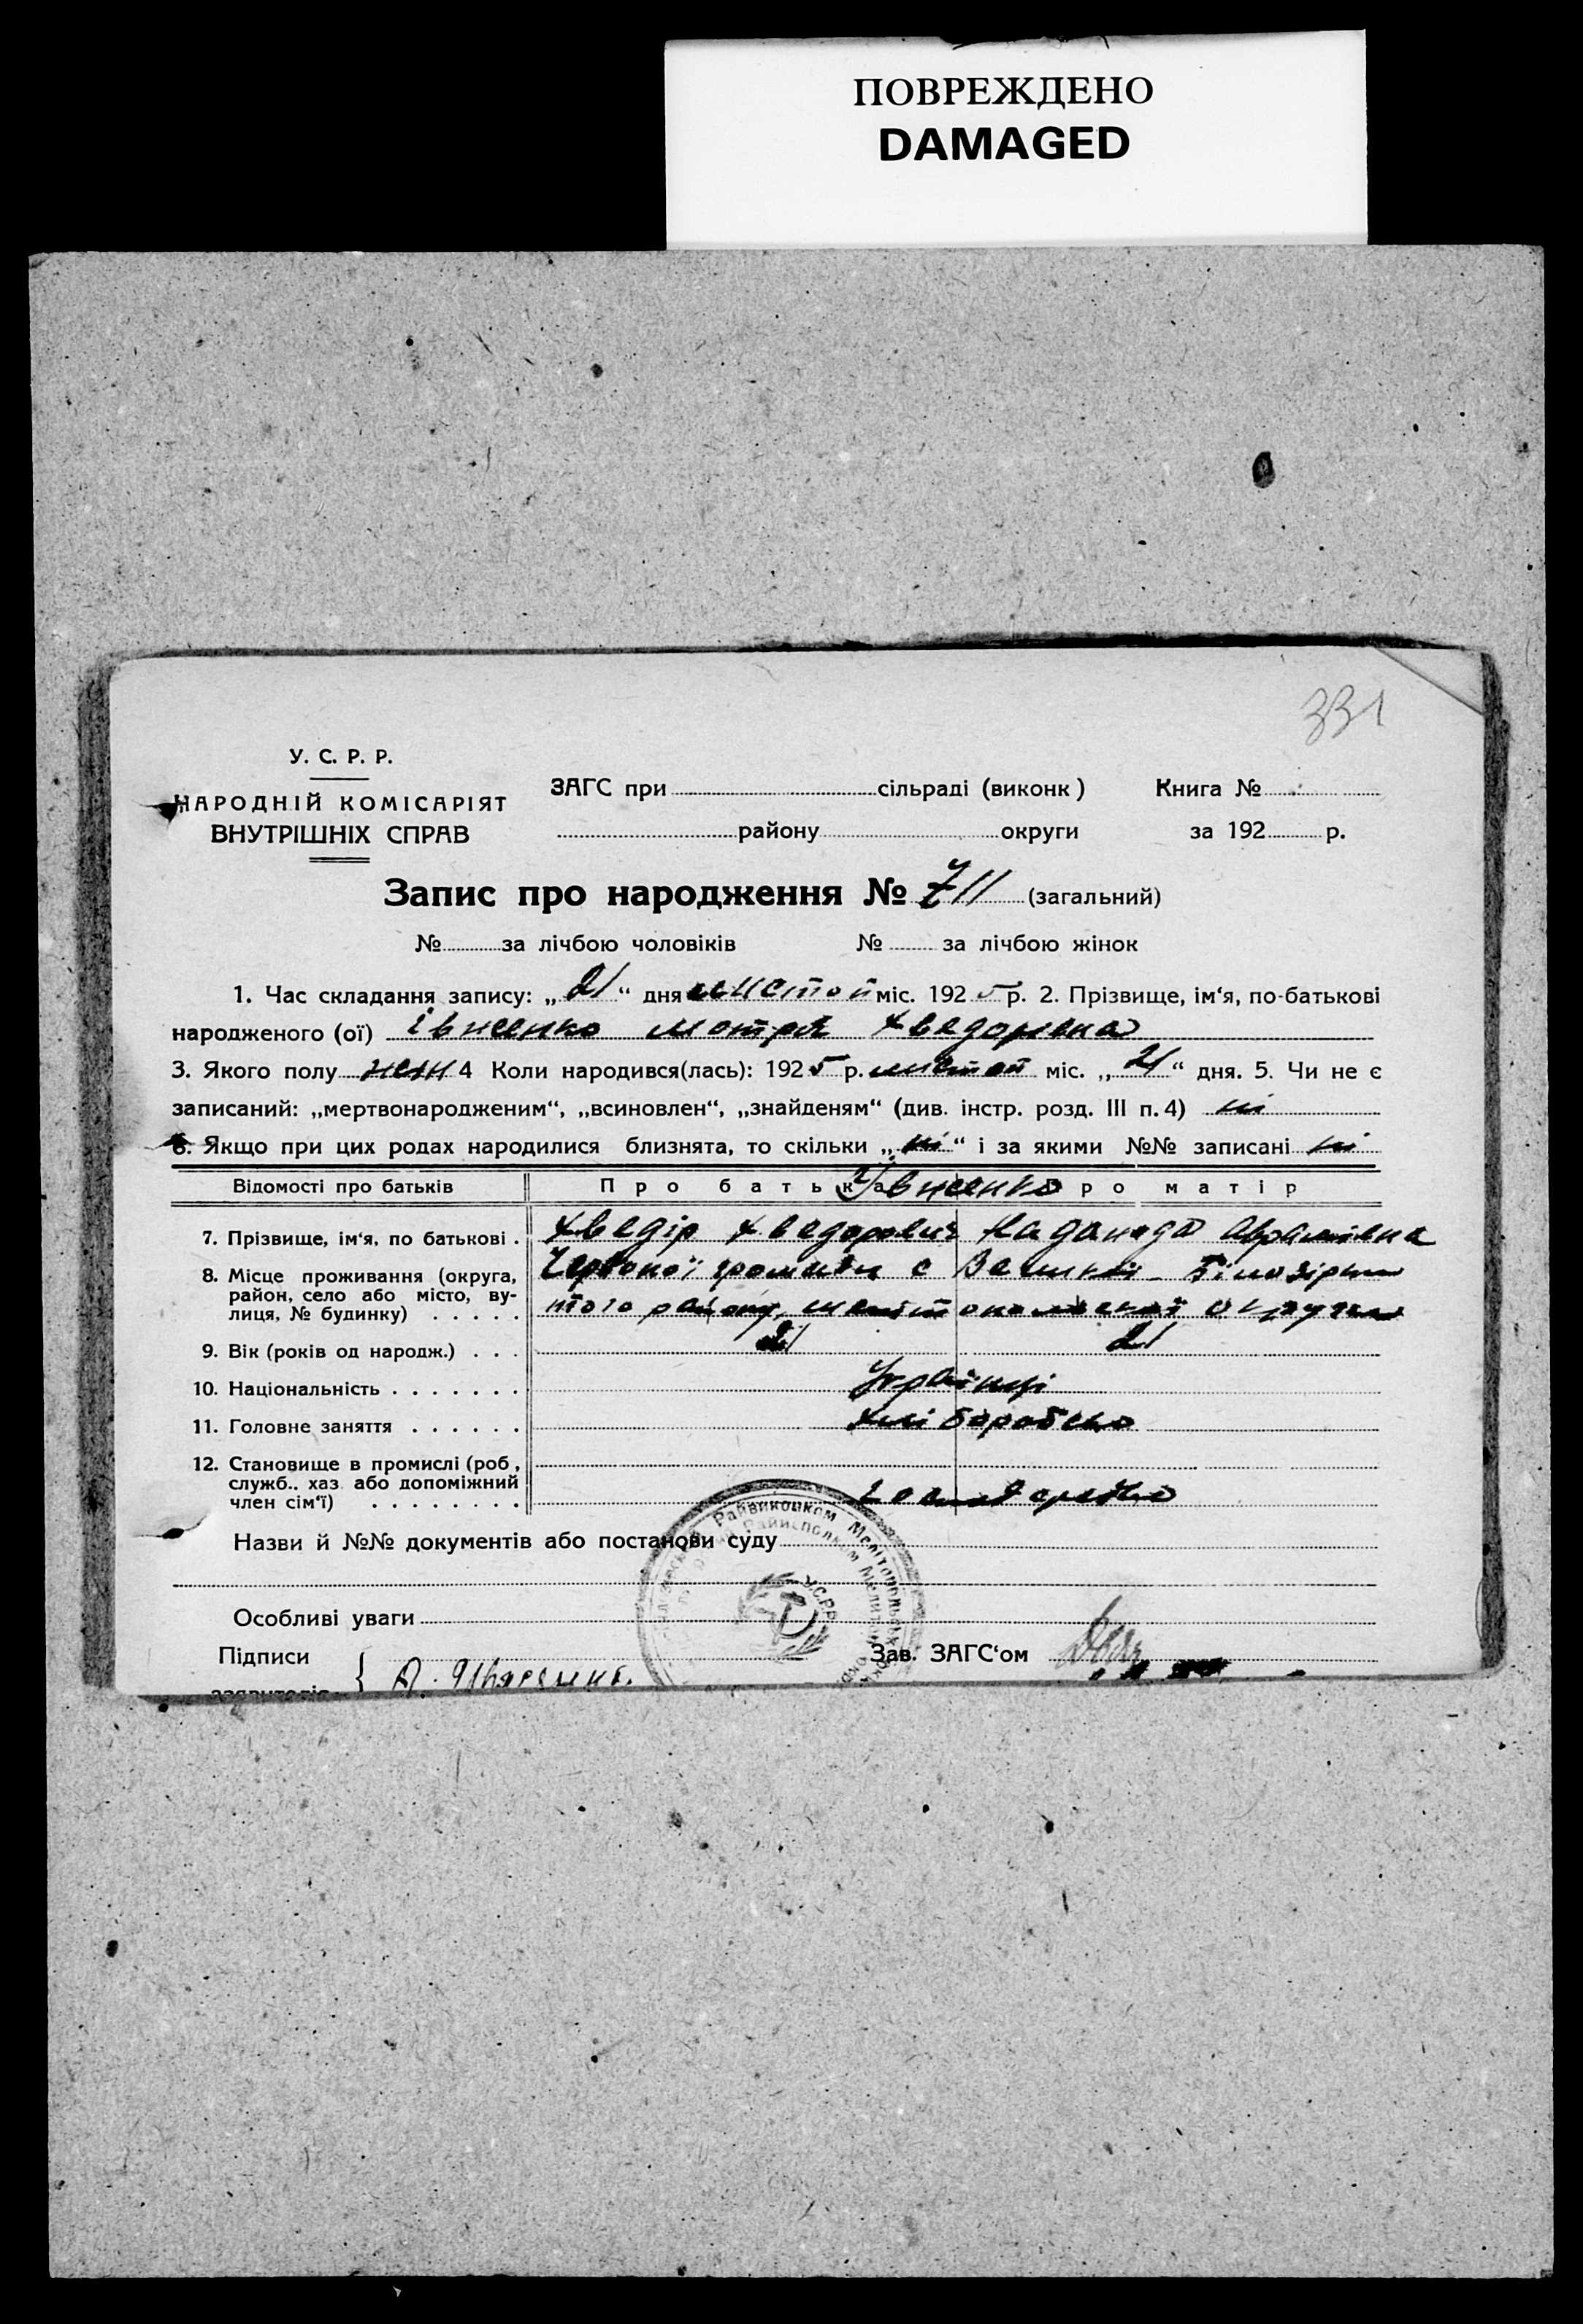 ПОВРЕЖДЕНО
DAMAGED
331
У. С. Р. Р.
НАРОДНІЙ КОМІСАРІЯТ
ВНУТРІШНІХ СПРАВ
ЗАГС при сільраді (виконк) Книга №
району округи за 192 р.
Запис про народження № 711 (загальний)
№ за лічбою чоловіків № за лічбою жінок
1. Час складання запису: „21“ дня листоп міс. 1925 р. 2. Прізвище, ім‘я, по-батькові
народженого (ої) Івженко Мотря Хведоровна
3. Якого полу жен 4 Коли народився(лась): 1925 р. листоп міс. „21“ дня. 5. Чи не є
записаний: „мертвонародженим“, „всиновлен“, „знайденям“ (див. інстр. розд. III п. 4) ні
6. Якщо при цих родах народилися близнята, то скільки „ні“ і за якими №№ записані ні
Відомості про батьків Про батька Івженко Про матір
7. Прізвище, ім‘я, по батькові . Хведір Хведорович
8. Місце проживання (округа, Червоної громади с Великої Білозірки
район, село або місто, ву- того району, округи
лиця, № будинку) . . . . .
9. Вік (років од народж.) . . . 21 21
10. Національність . . . . . . . Українці
11. Головне заняття . . . . . . Хліборобство
12. Становище в промислі (роб,
служб.. хаз або допоміжний
член сім‘ї) . . . . . . . .
Назви й №№ документів або постанови суду
Райвиконком Мелітопольськ
Райисполком
У.С.Р.Р.
Особливі уваги
Підписи Зав. ЗАГС‘ом
заявителів {